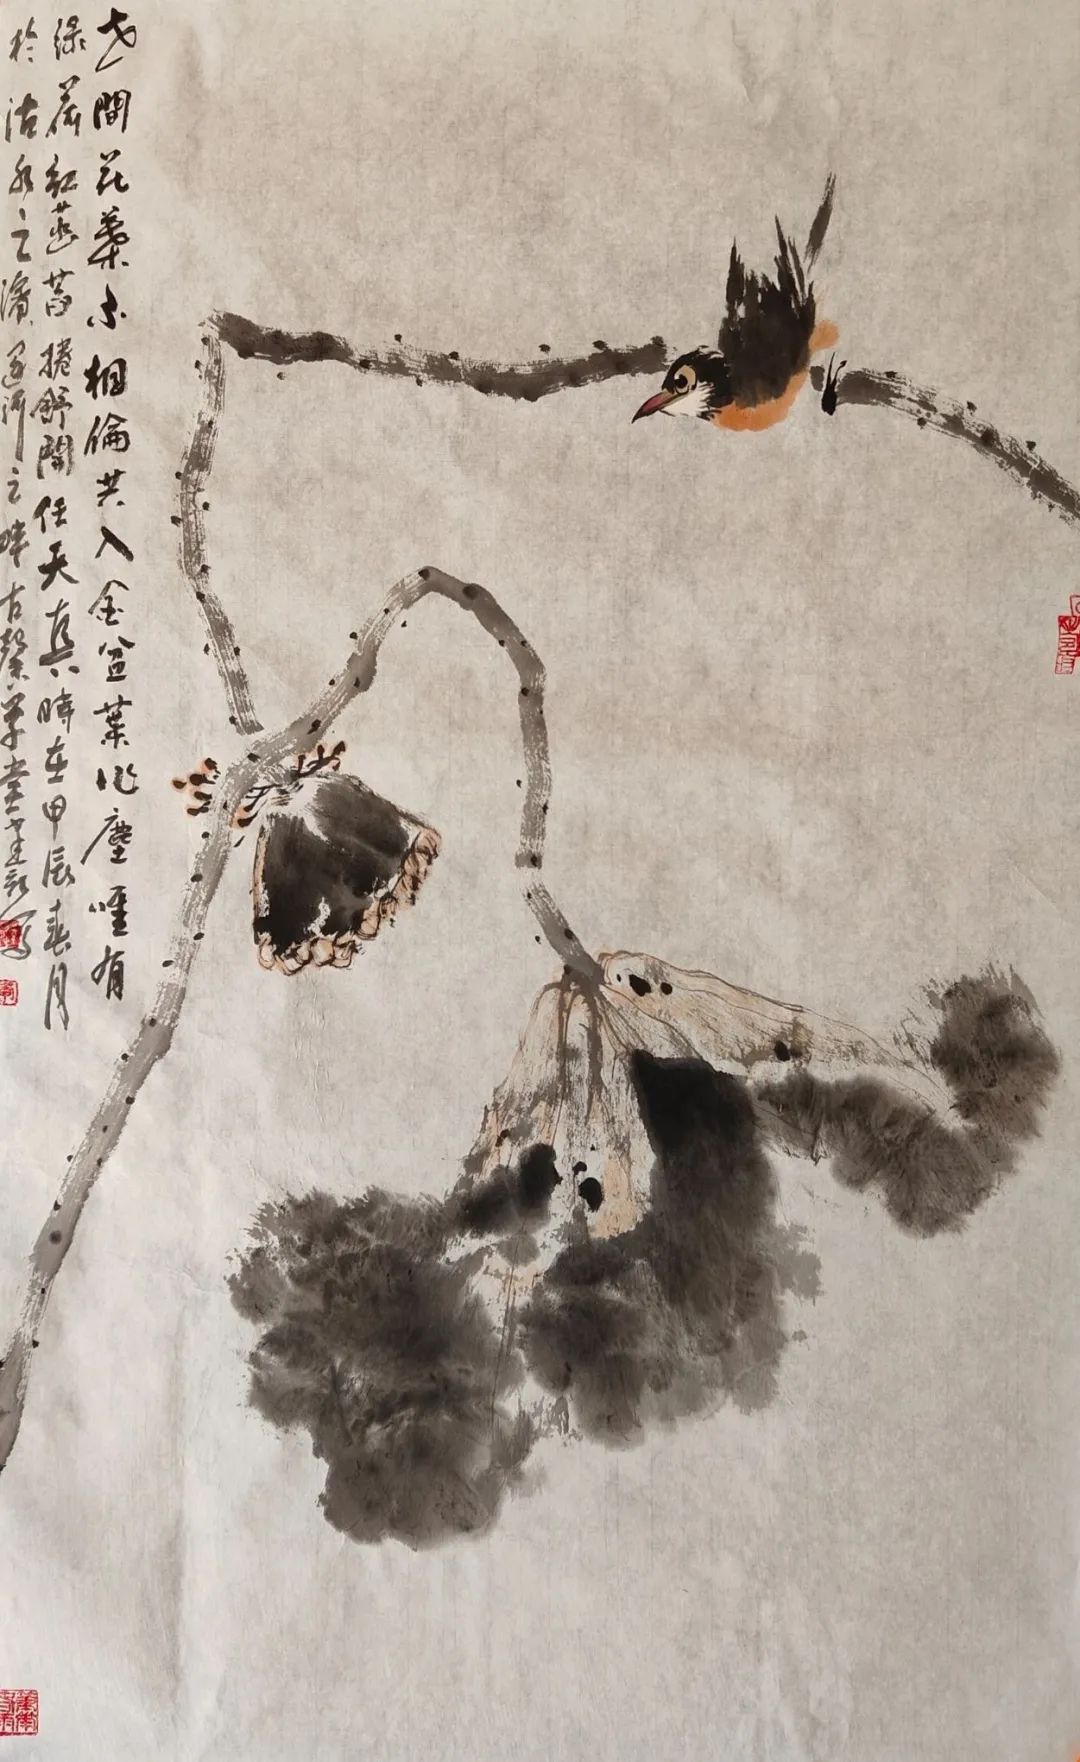 世間花葉不相倫共入金盆葉作塵唯有
綠荷紅菡萏捲舒開任天真時在甲辰春月
於沽水之濱運河之畔古馨草堂寫